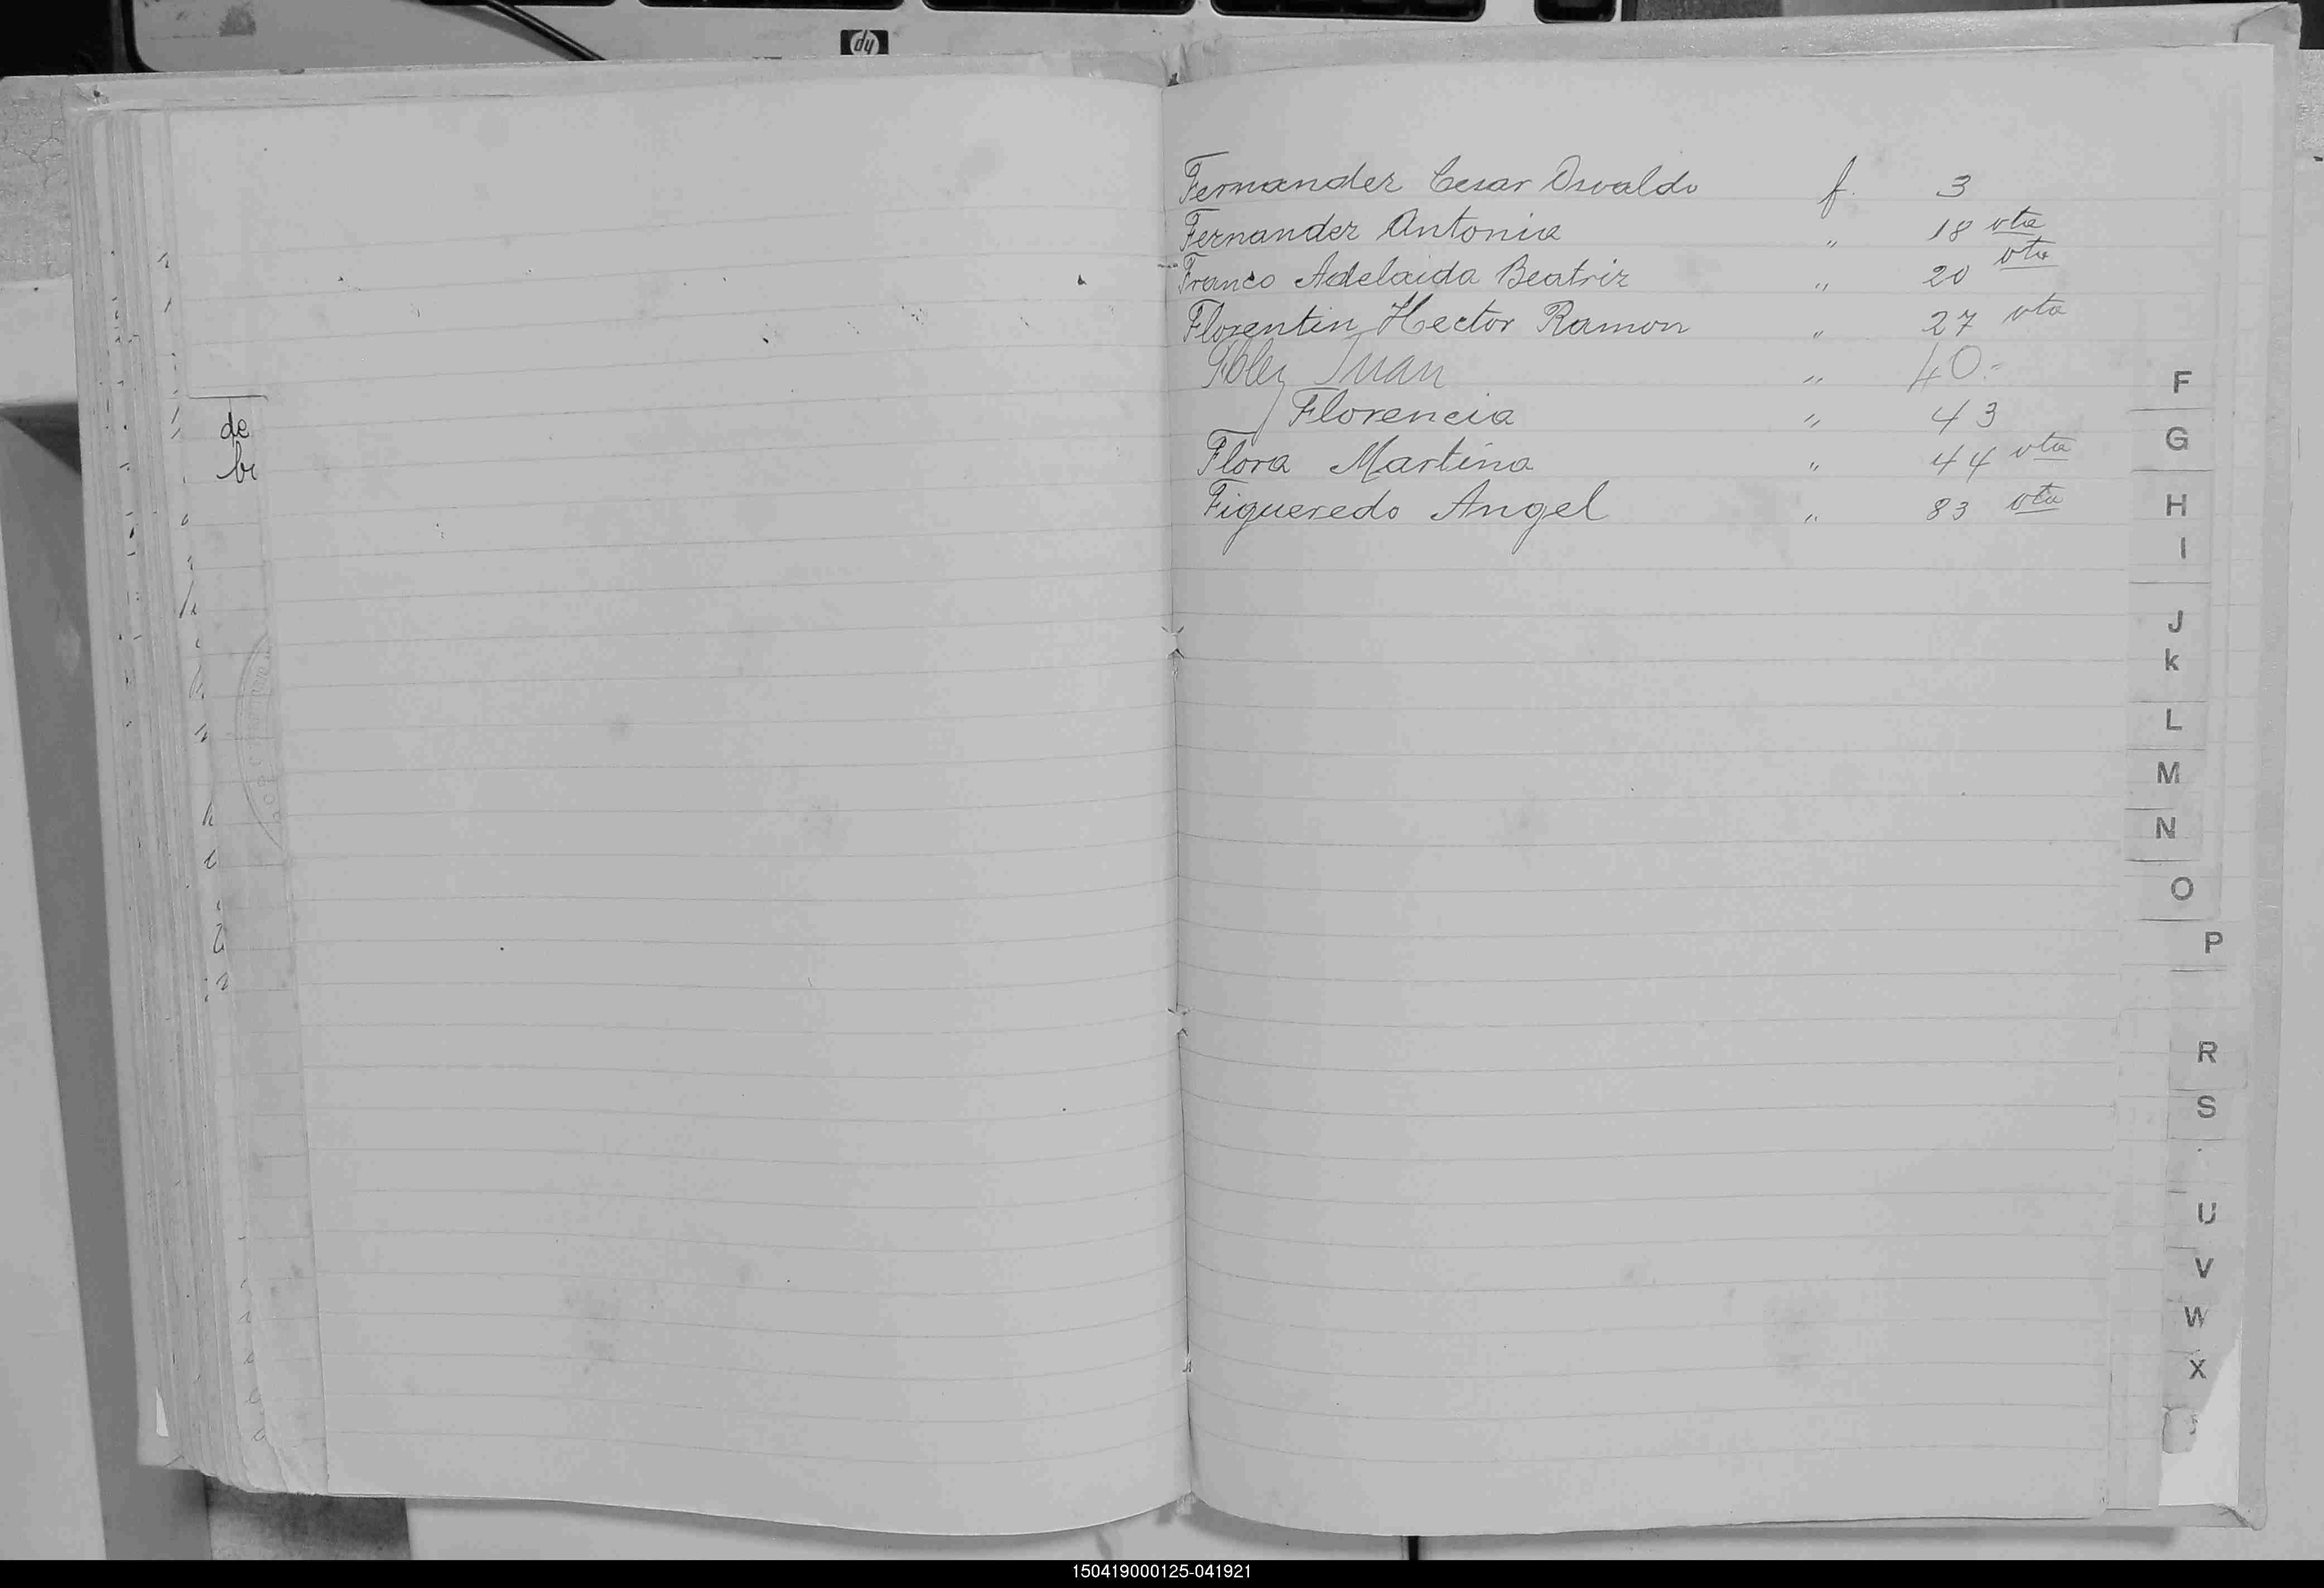 hp
Fernandez Cesar Osvaldo f. 3
Fernandez Antonia " 18 vta
Franco Adelaida Beatriz " 20 vta
Florentin Hector Ramon " 27 vta
Juan " 40.-
Florencia " 43
Flora Martina " 44 vta
Figueredo Angel " 83 vta
de
bi
F
G
H
I
J
k
L
M
N
O
P
R
S
U
V
W
X
150419000125-041921